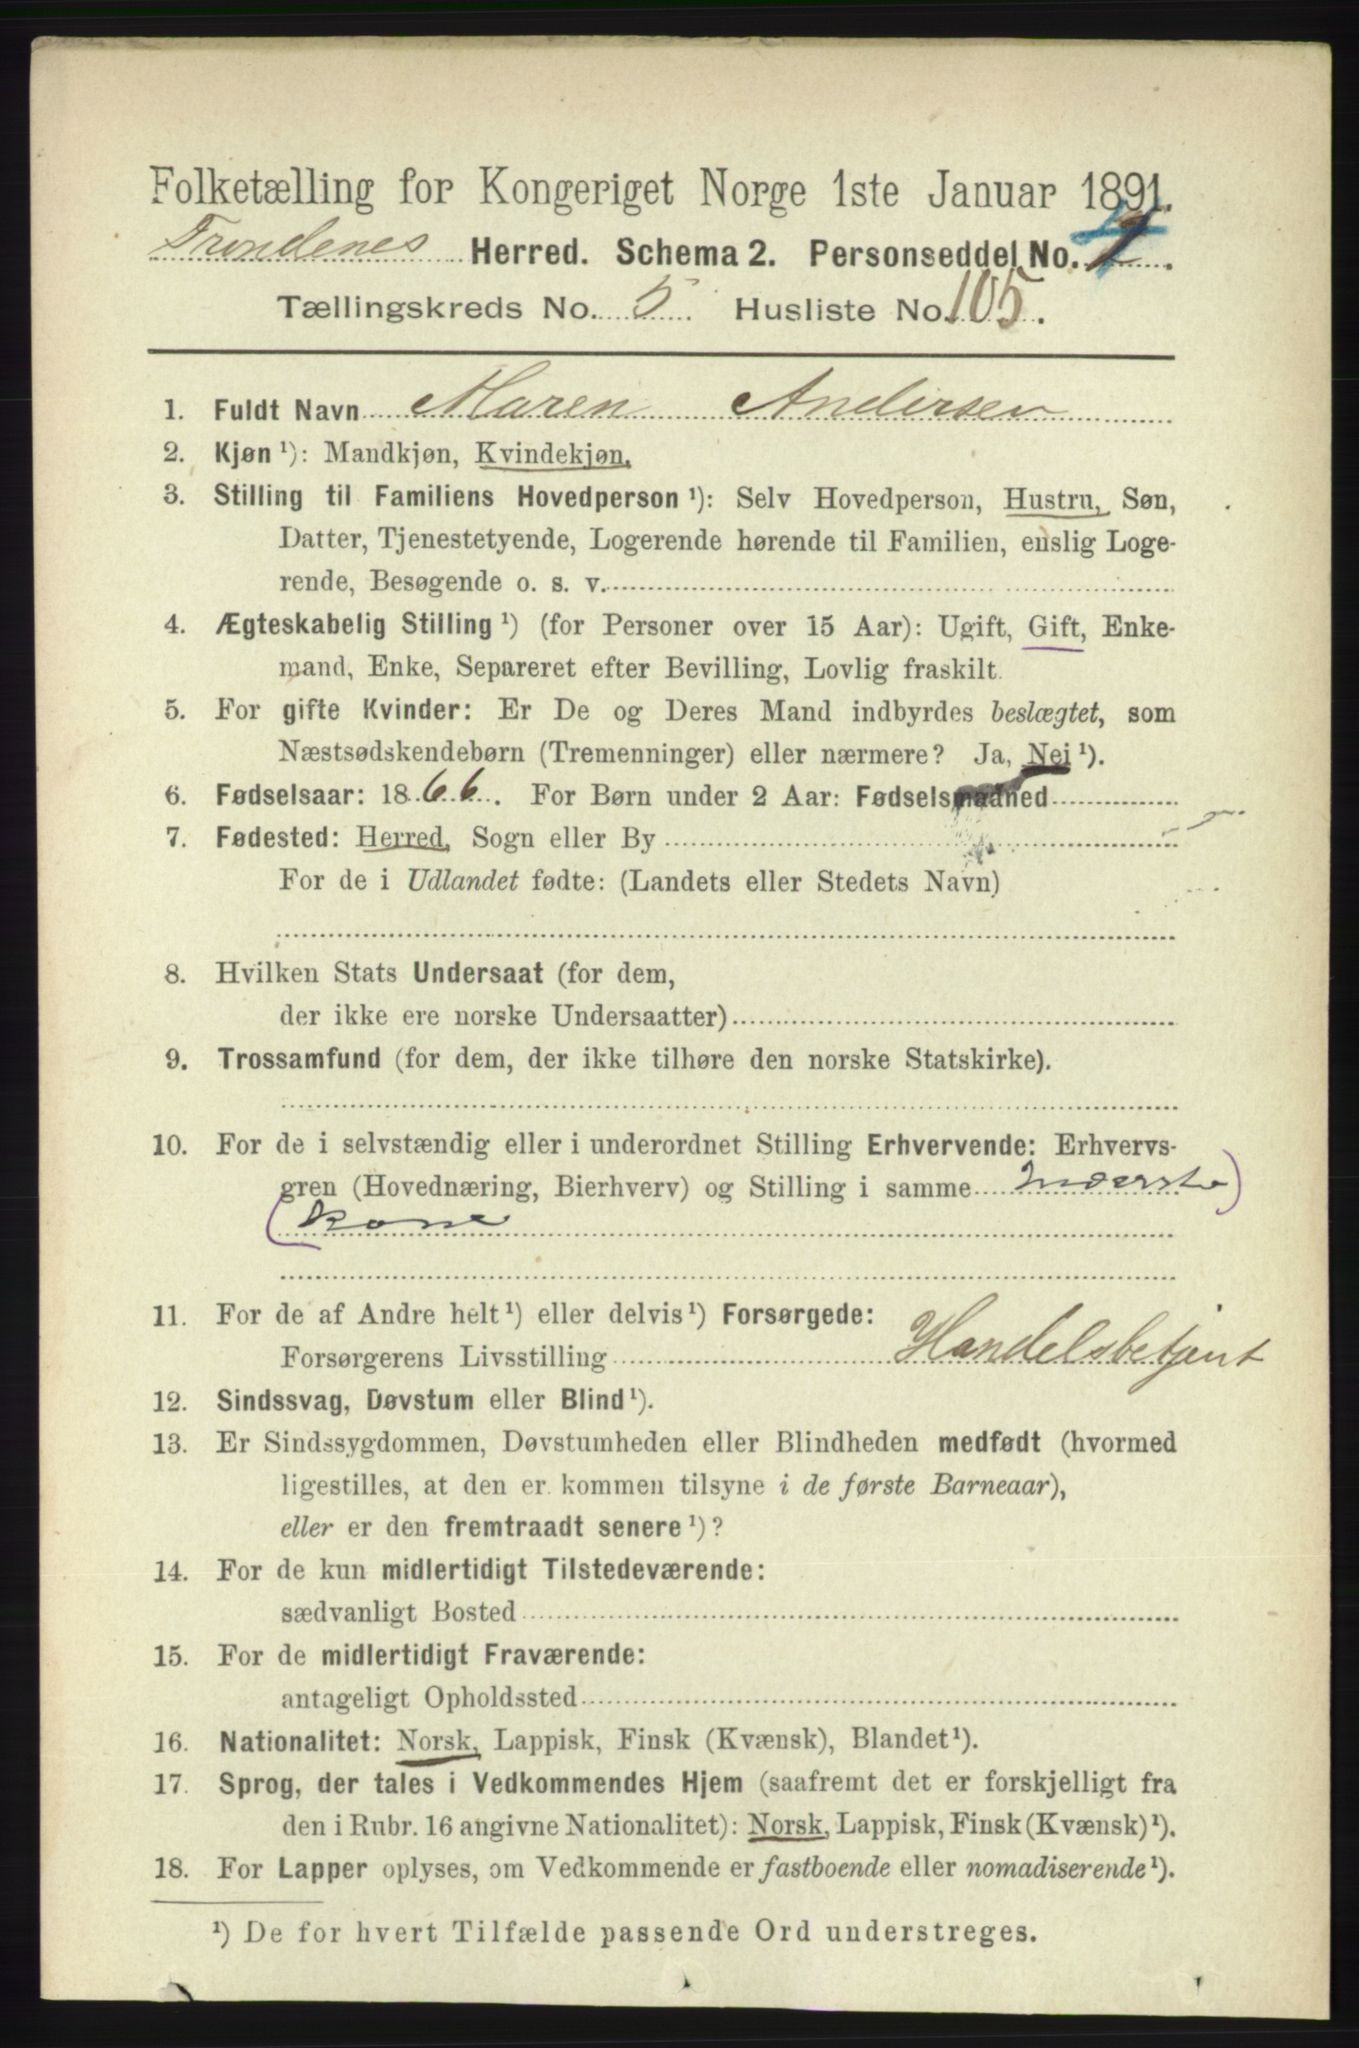 Folketælling for Kongeriget Norge 1ste Januar 1891.
Trondenes Herred. Schema 2. Personseddel No.
Tællingskreds No. 5. Husliste No. 105.
1. Fuldt Navn Maren Andersen
2. Kjøn ¹): Mandkjøn, Kvindekjøn,
3. Stilling til Familiens Hovedperson ¹): Selv Hovedperson, Hustru, Søn,
Datter, Tjenestetyende, Logerende hørende til Familien, enslig Loge-
rende, Besøgende o. s. v.
4. Ægteskabelig Stilling ¹) (for Personer over 15 Aar): Ugift, Gift, Enke-
mand, Enke, Separeret efter Bevilling, Lovlig fraskilt.
5. For gifte Kvinder: Er De og Deres Mand indbyrdes beslægtet, som
Næstsødskendebørn (Tremenninger) eller nærmere? Ja, Nei ¹).
6. Fødselsaar: 1866. For Børn under 2 Aar: Fødselsmaaned
7. Fødested: Herred, Sogn eller By
For de i Udlandet fødte: (Landets eller Stedets Navn)
8. Hvilken Stats Undersaat (for dem,
der ikke ere norske Undersaatter)
9. Trossamfund (for dem, der ikke tilhøre den norske Statskirke).
10. For de i selvstændig eller i underordnet Stilling Erhvervende: Erhvervs-
gren (Hovednæring, Bierhverv) og Stilling i samme Inderste)
(kone
11. For de af Andre helt ¹) eller delvis ¹) Forsørgede:
Forsørgerens Livsstilling Handelsbetjent
12. Sindssvag, Døvstum eller Blind ¹).
13. Er Sindssygdommen, Døvstumheden eller Blindheden medfødt (hvormed
ligestilles, at den er kommen tilsyne i de første Barneaar),
eller er den fremtraadt senere ¹)?
14. For de kun midlertidigt Tilstedeværende:
sædvanligt Bosted
15. For de midlertidigt Fraværende:
antageligt Opholdssted
16. Nationalitet: Norsk, Lappisk, Finsk (Kvænsk), Blandet ¹).
17. Sprog, der tales i Vedkommendes Hjem (saafremt det er forskjelligt fra
den i Rubr. 16 angivne Nationalitet): Norsk, Lappisk, Finsk (Kvænsk) ¹).
18. For Lapper oplyses, om Vedkommende er fastboende eller nomadiserende ¹).
¹) De for hvert Tilfælde passende Ord understreges.